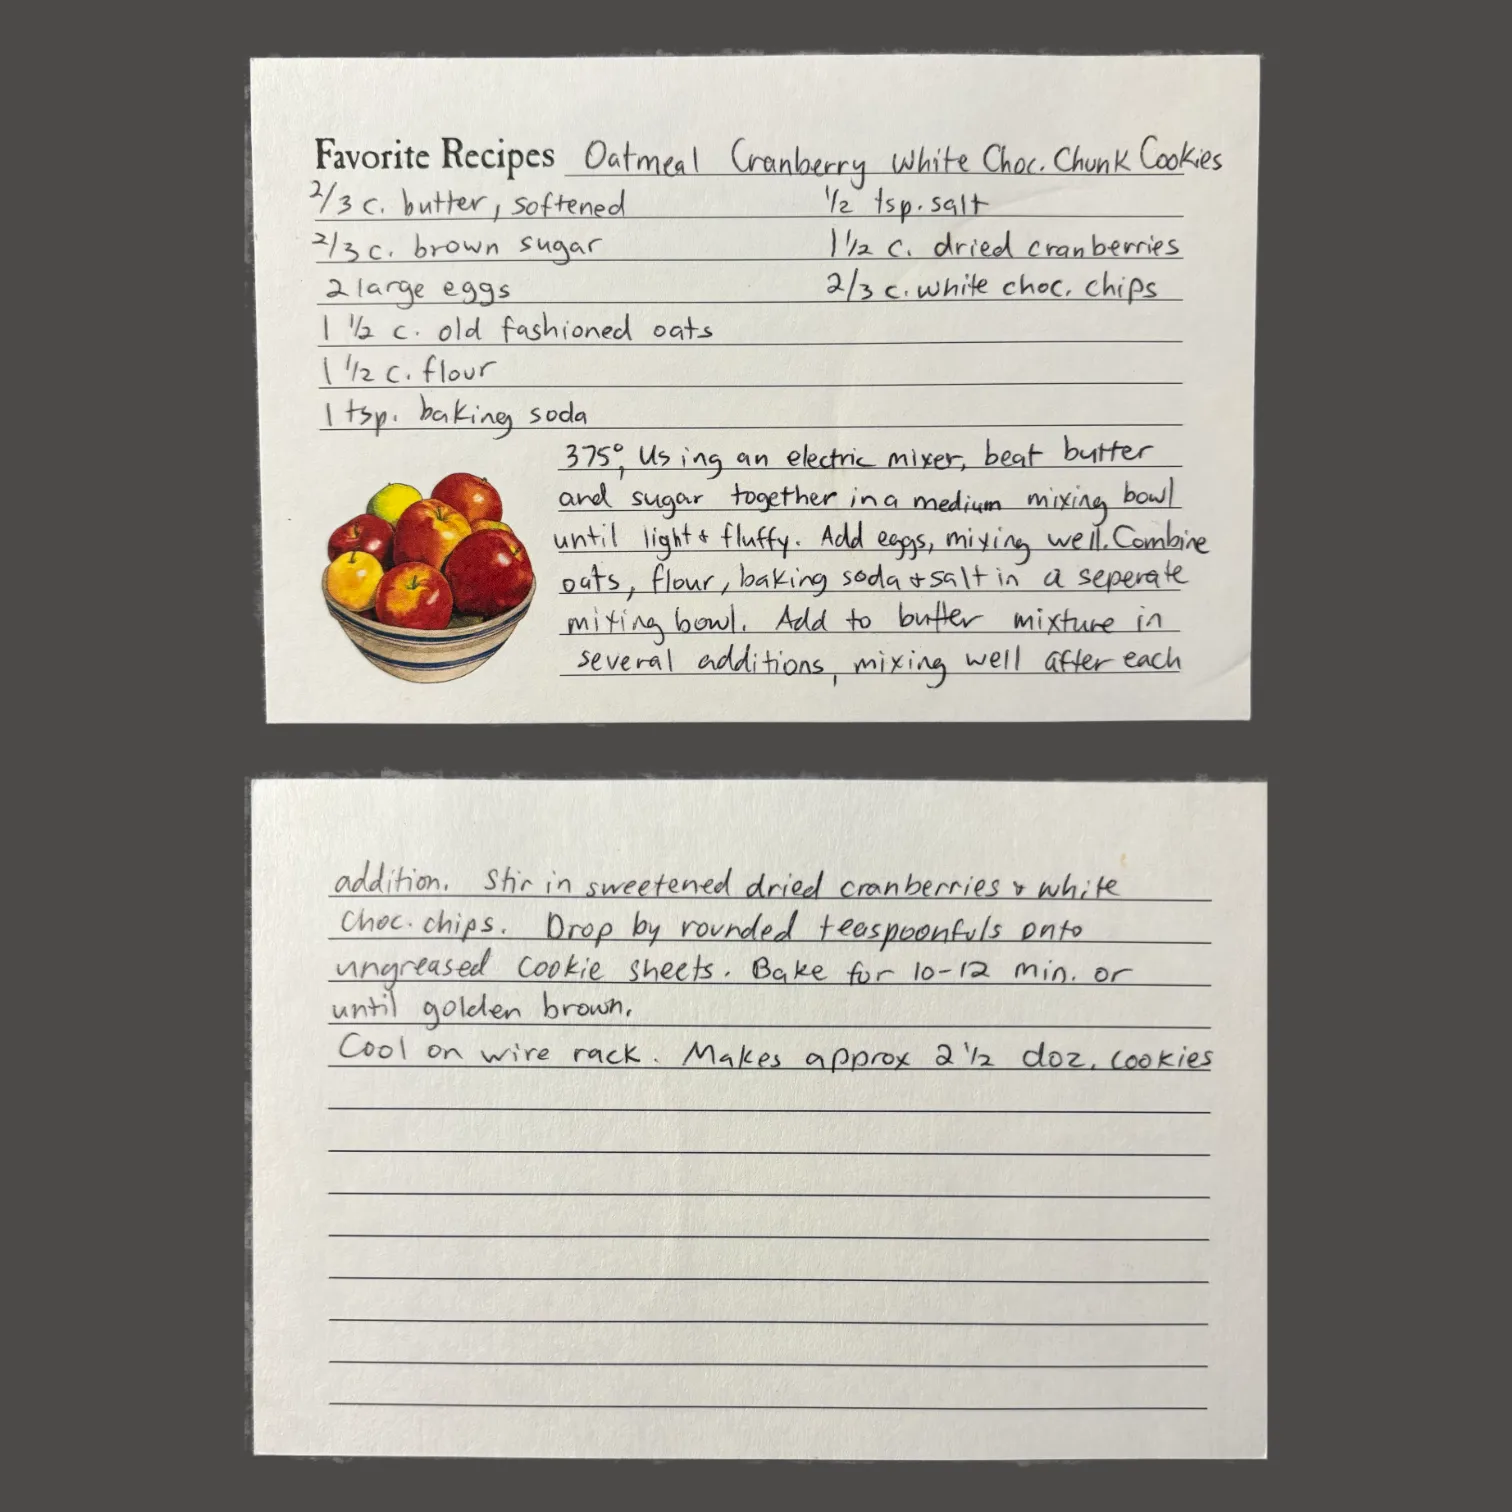 Favorite Recipes Oatmeal Cranberry White Choc. Chunk Cookies
2/3 c. butter, softened
2/3 c. brown sugar
2 large eggs
1 1/2 c. old fashioned oats
1 1/2 c. flour
1 tsp. baking soda
1/2 tsp. salt
1 1/2 c. dried cranberries
2/3 c. white choc. chips
375°, Using an electric mixer, beat butter
and sugar together in a medium mixing bowl
until light & fluffy. Add eggs, mixing well. Combine
oats, flour, baking soda & salt in a seperate
mixing bowl. Add to butter mixture in
several additions, mixing well after each
addition. Stir in sweetened dried cranberries & white
Choc. chips. Drop by rounded teaspoonfuls onto
ungreased cookie sheets. Bake for 10-12 min. or
until golden brown.
Cool on wire rack. Makes approx 2 1/2 doz. cookies